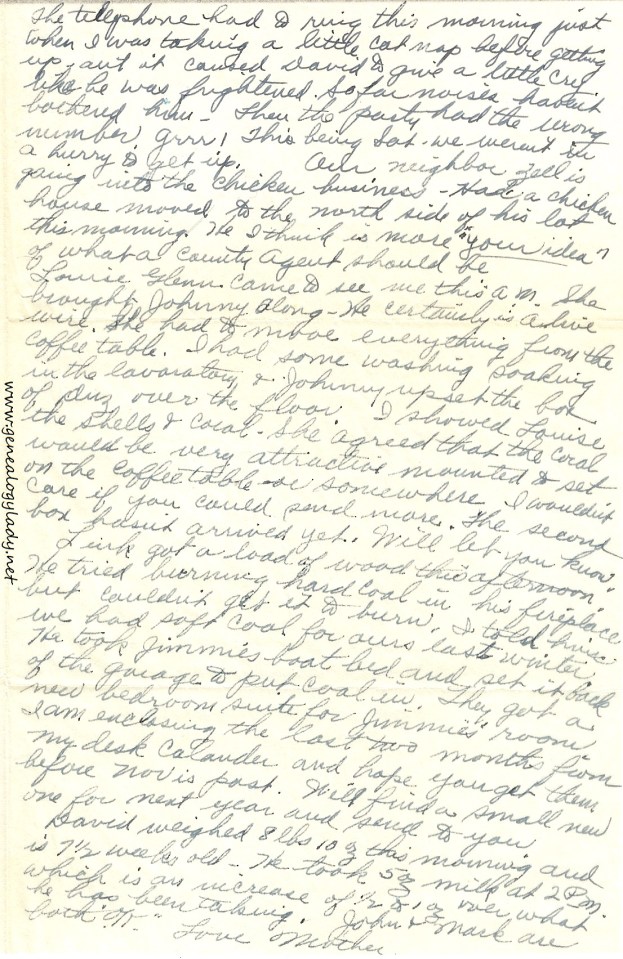 The telephone had to ring this morning just
when I was taking a little cat nap before getting
up, and it caused David to give a little cry
like he was frightened. So far noises haven't
bothered him - Then the party had the wrong
number, grrr! This being Sat. we weren't in
a hurry to get up. Our neighbor Zell is
going into the chicken business - Had a chicken
house moved to the north side of his lot
this morning. He I think is more "your idea"
of what a County Agent should be
Louise Glenn came to see me this a.m. She
brought Johnny along - He certainly is a live
wire. She had to move everything from the
coffee table. I had some washing soaking
in the lavoratory & Johnny upset the box
of duz over the floor. I showed Louise
the shells & coral. She agreed that the coral
would be very attractive mounted & set
on the coffee table or somewhere. I wouldn't
care if you could send more. The second
box hasn't arrived yet. Will let you know
Fink got a load of wood this afternoon.
He tried burning hard coal in his fireplace
but couldn't get it to burn. I told him
we had soft coal for ours last winter.
He took Jimmies boat bed and set it back
of the garage to put coal in. They got a
new bedroom suite for Jimmies' room
I am enclosing the last two months from
my desk calander and hope you get them
before Nov is past. Will find a small new
one for next year and send to you
David weighed 8 lbs 10 oz this morning and
is 7 1/2 weeks old - He took 5 oz milk at 2 P.M.
which is an increase of 1/2 to 1 oz over what
he has been taking. John & Mark are
both
Love Mother
www.genealogylady.net